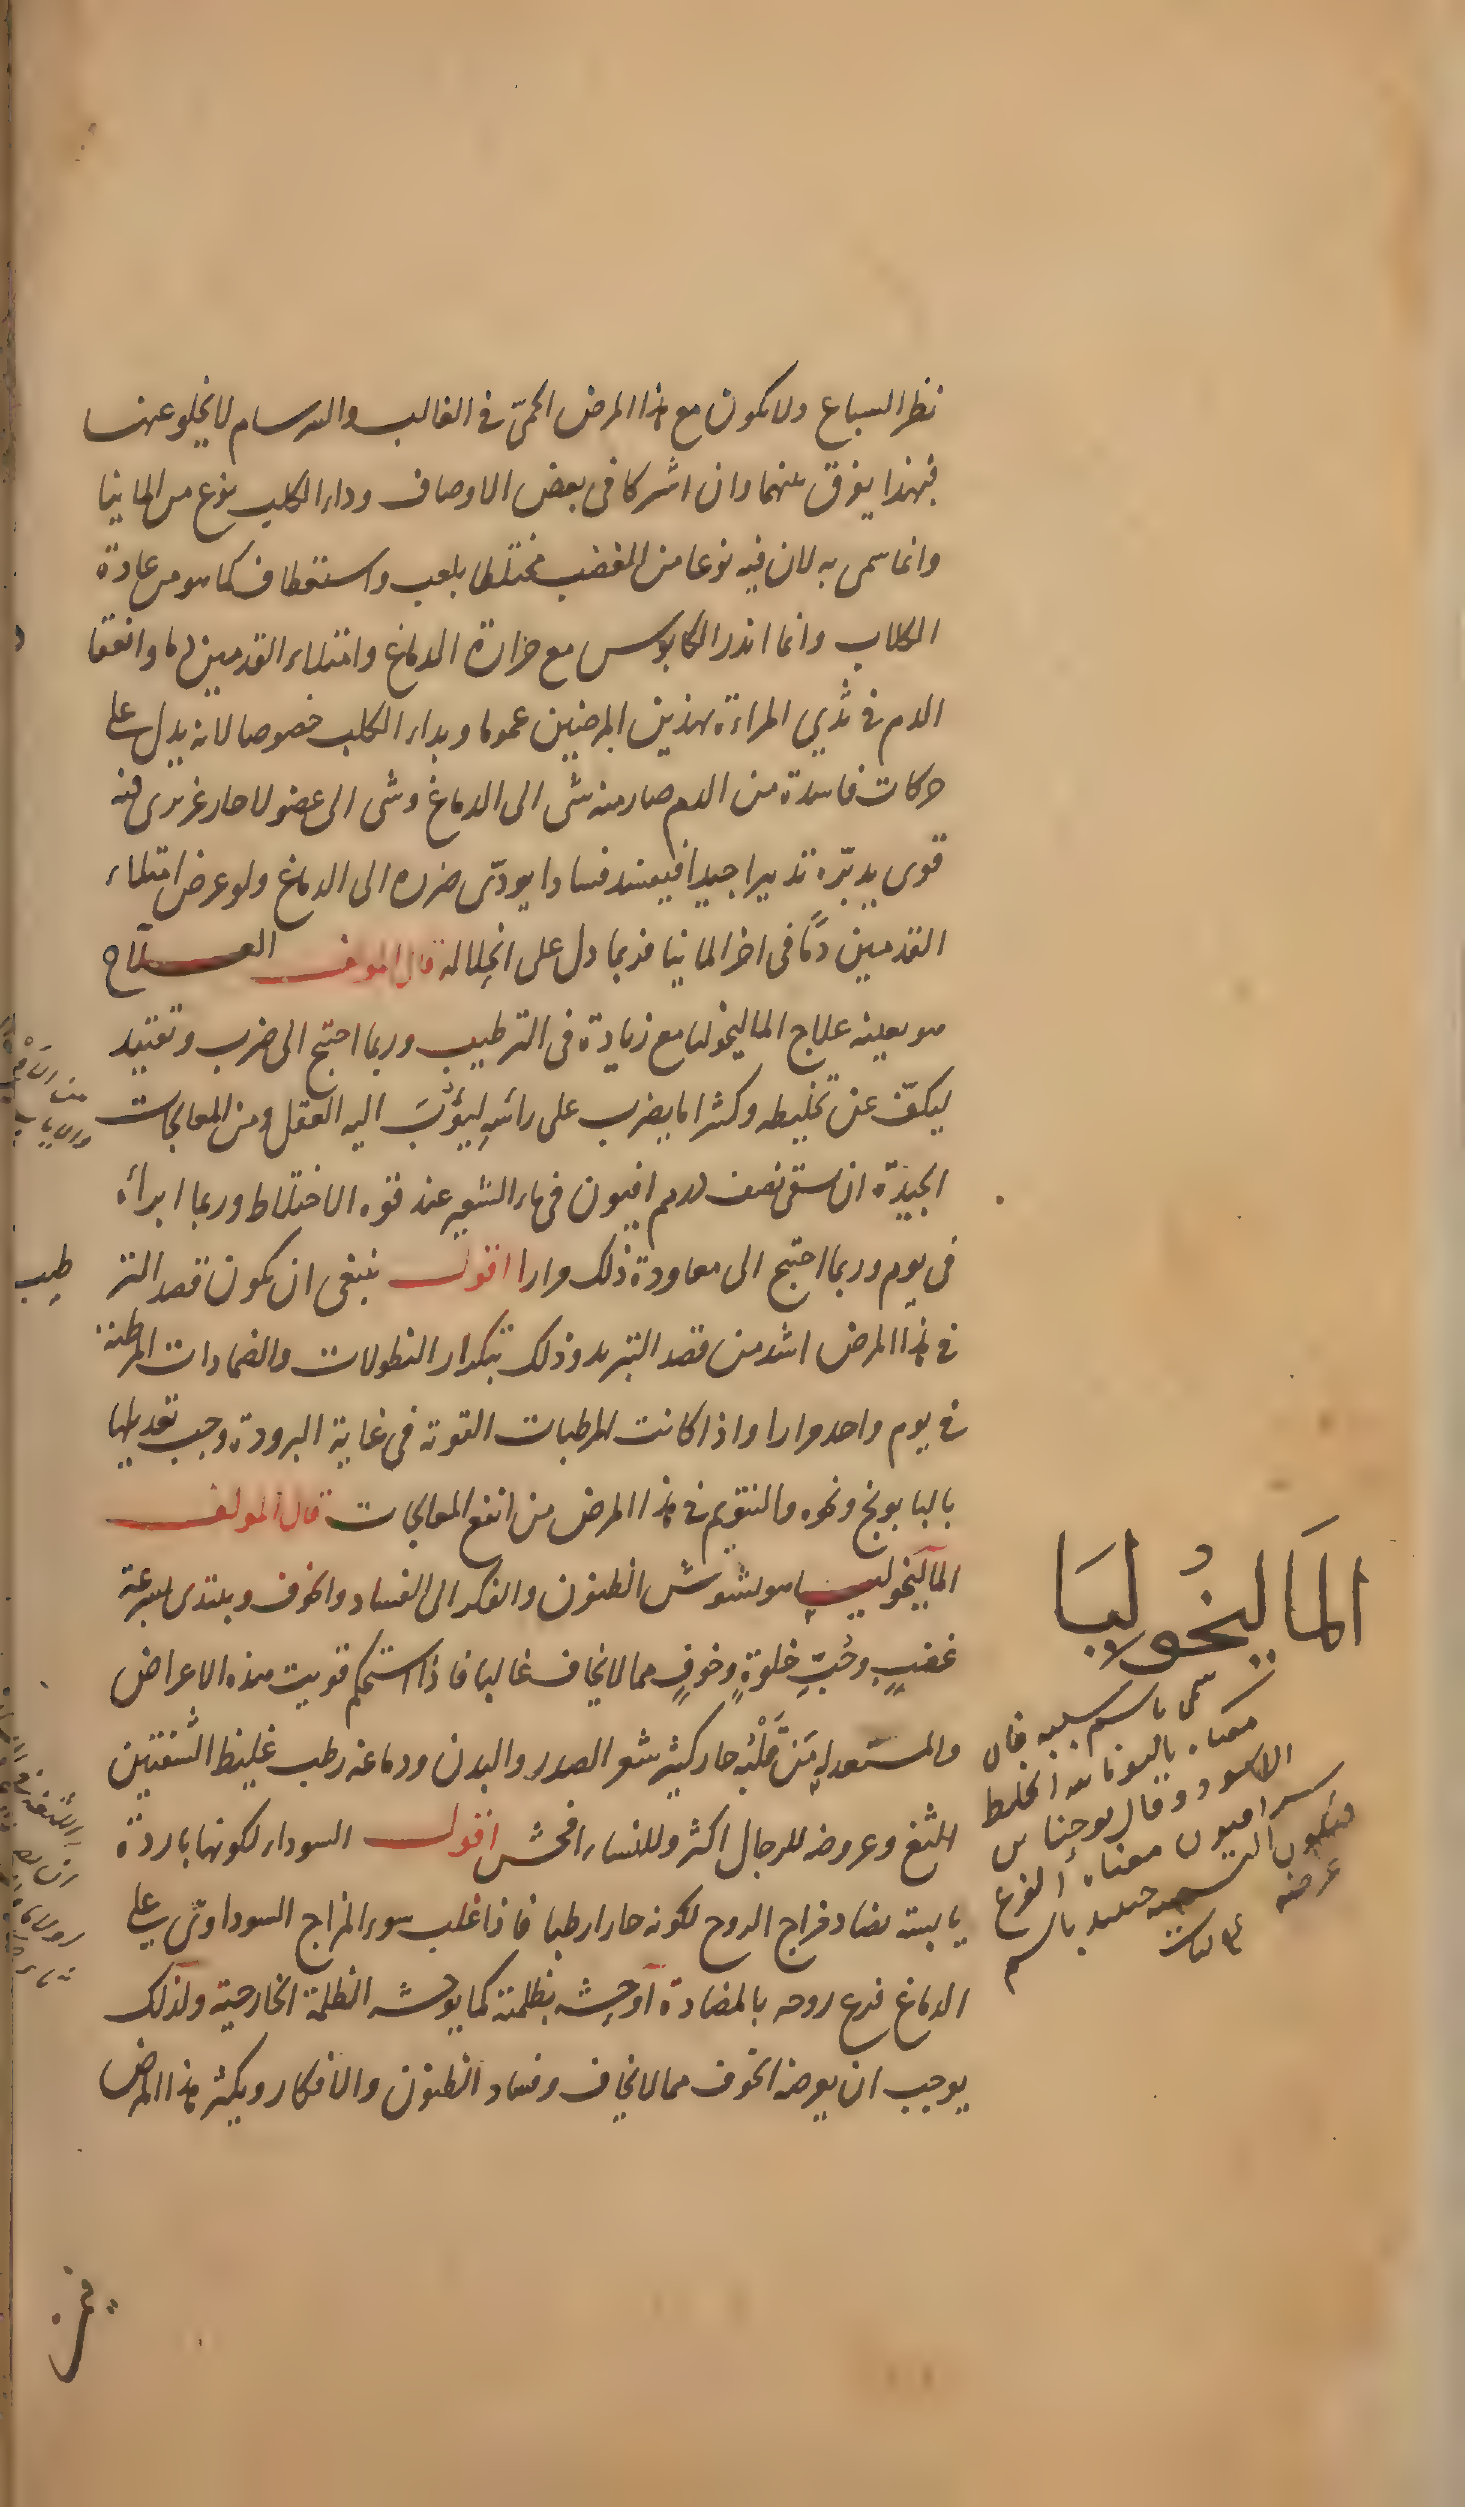 نظر السباع ولا يكون مع هذا المرض الحمى في الغالب والسرسام لا يخلو عنها
فبهذا يفرق بينهما وان اشتركا في بعض الاوصاف وداء الكلب نوع من المانيا
وانما سمى به لان فيه نوعا من الغضب مختلطا بلعب واستعطاف كما هو من عادة
الكلاب وانما انذر الكابوس مع حرارة الدماغ وامتلاء القدمين دما وانعقا
الدم في ثدي المراءة بهذين المرضين عموما وبداء الكلب خصوصا لانه يدل على
حركات فاسدة من الدم صار منه شى الى الدماغ وشى الى عضو لا حار غريزى فيه
قوى يدبّره تدبيرا جيدا فيفسد فسادا يودّى ضرره الى الدماغ ولو عرض امتلاء
القدمين دمًا في اخر المانيا فربما دل على انحلاله قال المولف العلاج
هو بعينه علاج الماليخوليا مع زيادة في الترطيب وربما احتيج الى ضرب وتقييد
ليكفّ عن تخليطه وكثيرا ما يضرب على رائسهِ ليؤبَ اليه العقل ومن المعالجات
الجيدّة ان يسقى نصف درهم افيون في ماء الشعير عند قوة الاختلاط وربما ابراه
في يوم وربما احتيج الى معاودة ذلك مرارا اقول ينبغى ان يكون قصد التر طيب
في هذا المرض اشد من قصد التبريد وذلك بتكرار النطولات والضمادات المرطبة
في يوم واحد مرارا واذا كانت المرطبات القوية في غاية البرودة وجب تعديلها
بالبابونج ونحوه والتنويم في هذا المرض من انفع المعالجات قال المولف
الماليخوليا هو تشوش الظنون والفكر الى الفساد والخوف ويبتدى بسرعة
غضبٍ وحُبِّ خلوةٍ وخوفٍ مما لا يخاف غالبا فاذا استحكم قويت هذه الاعراض
والمستعد له مَنْ قَلْبُه حار كثير شعر الصدر والبدن ودماغه رطب غليظ الشفتين
الثغ وعروضه للرجال اكثر وللنساء افحش اقول السوداء لكونها باردة
يابسة تضاد مزاج الروح لكونه حارا رطبا فاذا غلب سوء المزاج السوداوى على
الدماغ فزع روحه بالمضادة آوحشه بظلمته كما يوحشه الظلمة الخارجية ولذلك
يوجب ان يعرض الخوف مما لا يخاف وفساد الظنون والافكار ويكثر هذا المرض
المَاليخُوليَا
سمى باسم سببه فان
معناه باليونانية الخلط
الاسود وقال يوحنا بن
سرافيون معناه الفزع
فيكون التسمية حينئذ باسم
عرضه